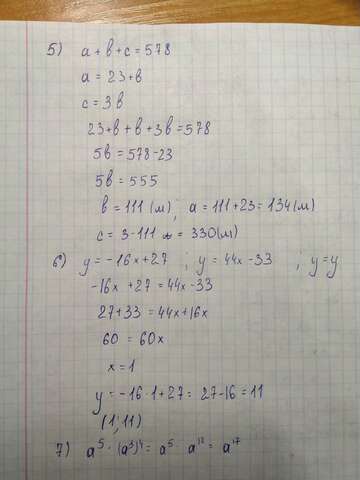 5) a + b + c = 578
a = 23 + b
c = 3b
23 + b + b + 3b = 578
5b = 578 - 23
5b = 555
b = 111 (м), a = 111 + 23 = 134 (м)
c = 3 · 111 = 330 (м)
6) y = -16x + 27 ; y = 44x - 33 ; y = y
-16x + 27 = 44x - 33
27 + 33 = 44x + 16x
60 = 60x
x = 1
y = -16 · 1 + 27 = 27 - 16 = 11
(1; 11)
7) a⁵ · (a³)⁴ = a⁵ · a¹² = a¹⁷